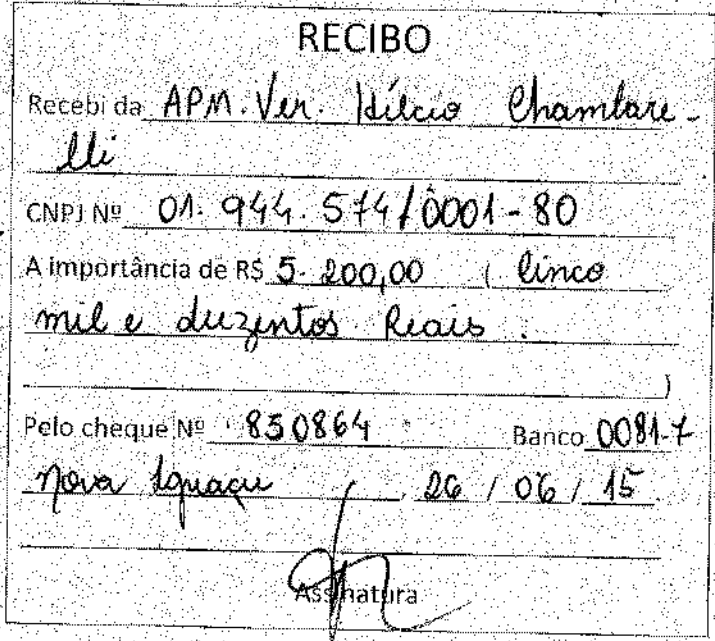 RECIBO
Recebi da APM. Ver. Hílcio Chambare-
lli
CNPJ Nº 01.944.574/0001-80
A importância de R$ 5.200,00 ( Cinco
mil e duzentos Reais.
)
Pelo cheque Nº 850864 Banco 0081-7
Nova Iguaçu, 26 / 06 / 15
Assinatura